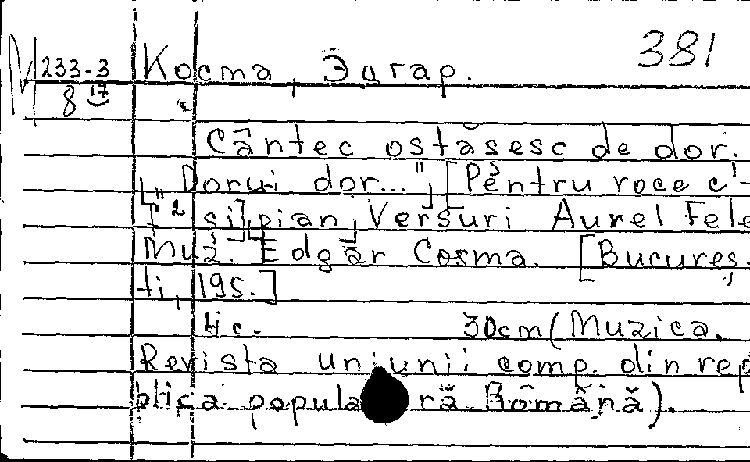 381
M 233-3 Косма, Эдгар.
8 17
Cântec ostăsesc de dor.
„Dorui dor..." [Pentru voce c'-
și pian] Versuri Aurel Fele
Muz. Edgar Cosma. [Bucureș-
ti, 195.]
4 c. 30cm (Muzica.
Revista uniunii comp. din rep
blica popula ră Română).